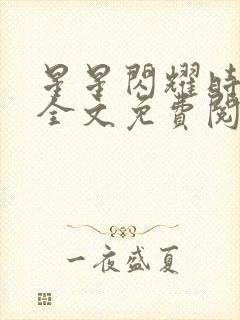 星星閃耀時
全文免費閱
一夜盛夏